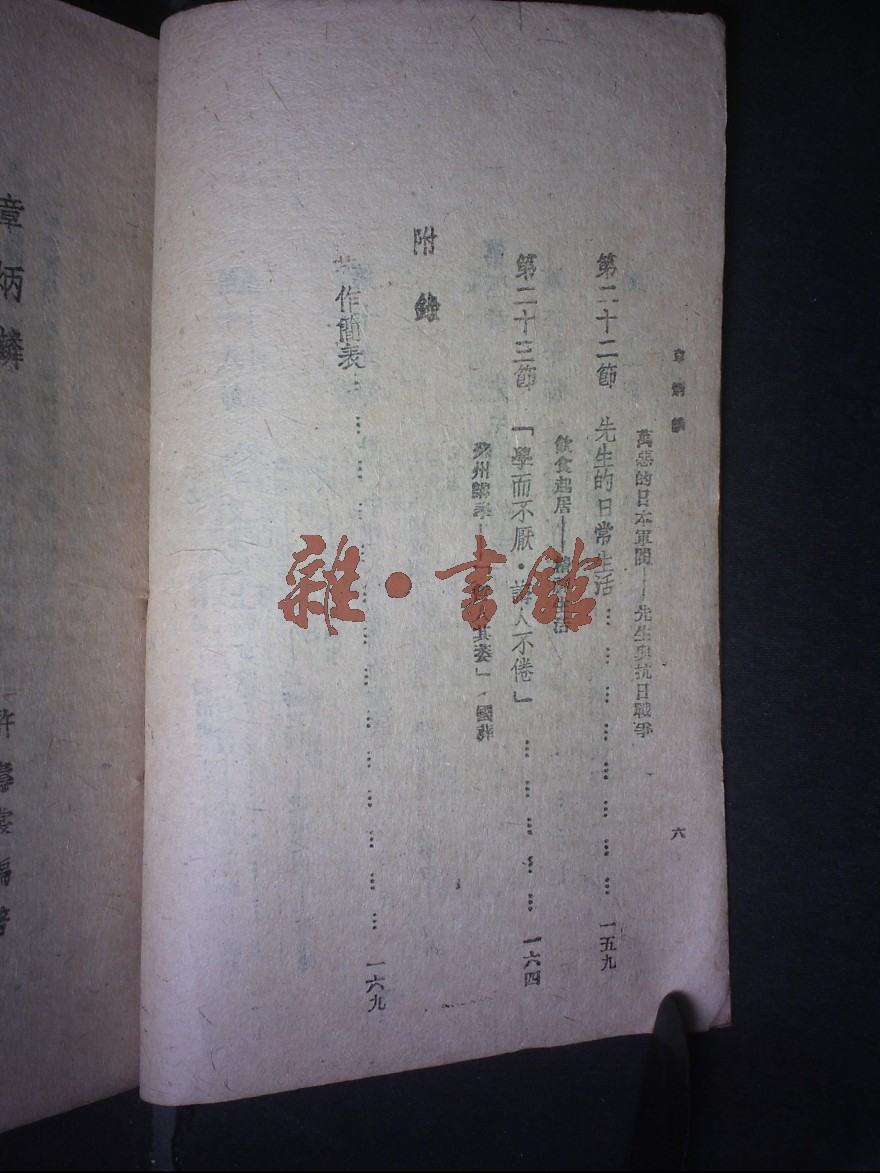 章炳麟
六
萬惡的日本軍閥——先生與抗日戰爭
第二十二節 先生的日常生活 …………………… 一五九
飲食起居——生活
第二十三節 「學而不厭·誨人不倦」 …………… 一六四
蘇州講學——「其萎」·國葬
附錄
作簡表 ………………………… 一六九
雜·書館
章炳麟
許壽裳編著